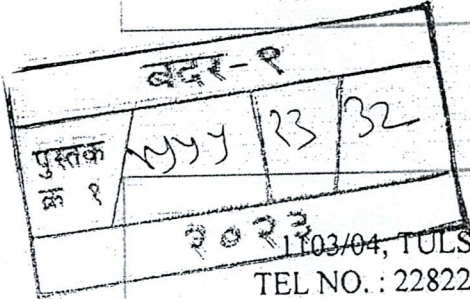 बदर-१
पुस्तक
क्र १
२३ 32
२०२३
1103/04, TULS
TEL NO. : 22822